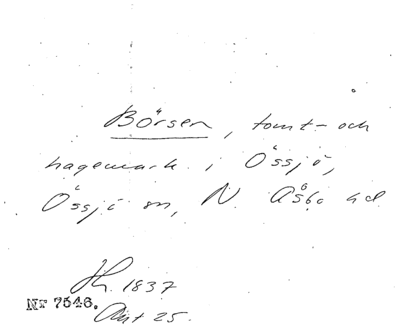 Börsen, tomt- och
hagemark i Össjö,
Össjö sn, N. Åsbo hd
1837
Nr 7546.
Akt 25.